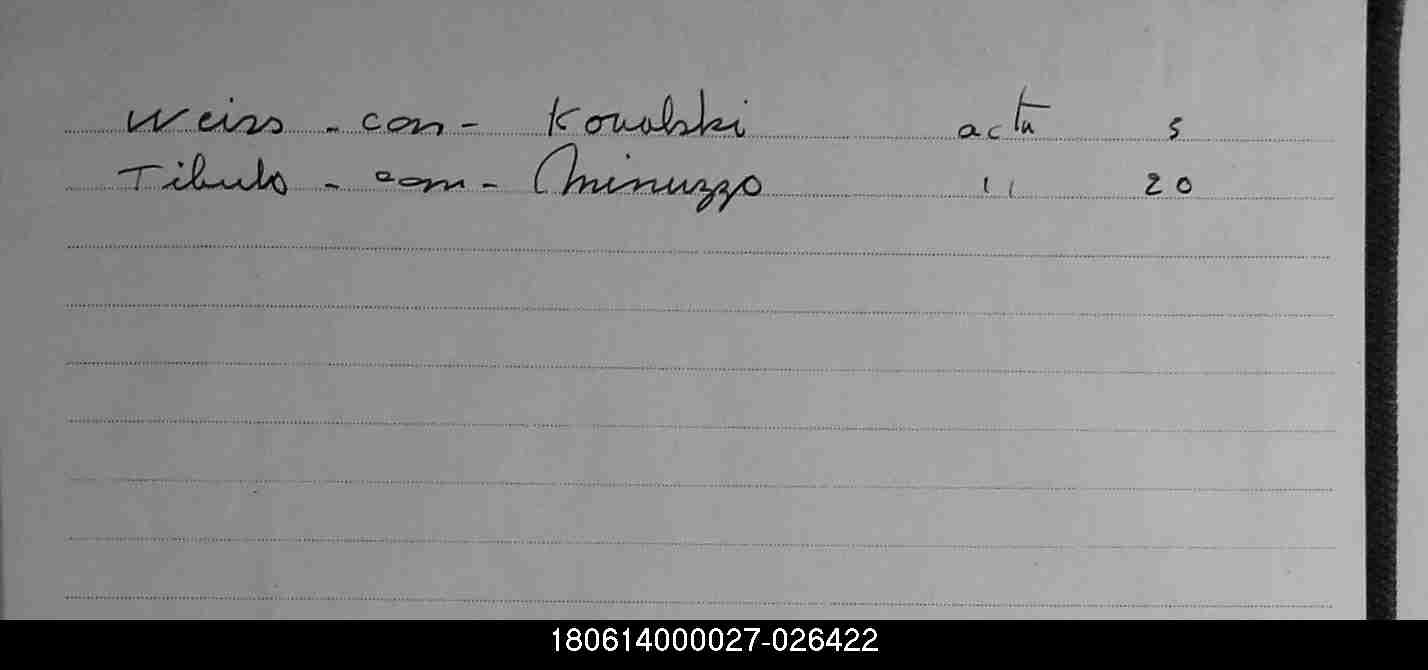 Weiss - con - Kowalski acta 5
Tibulo - con - Minuzzo " 20
180614000027-026422